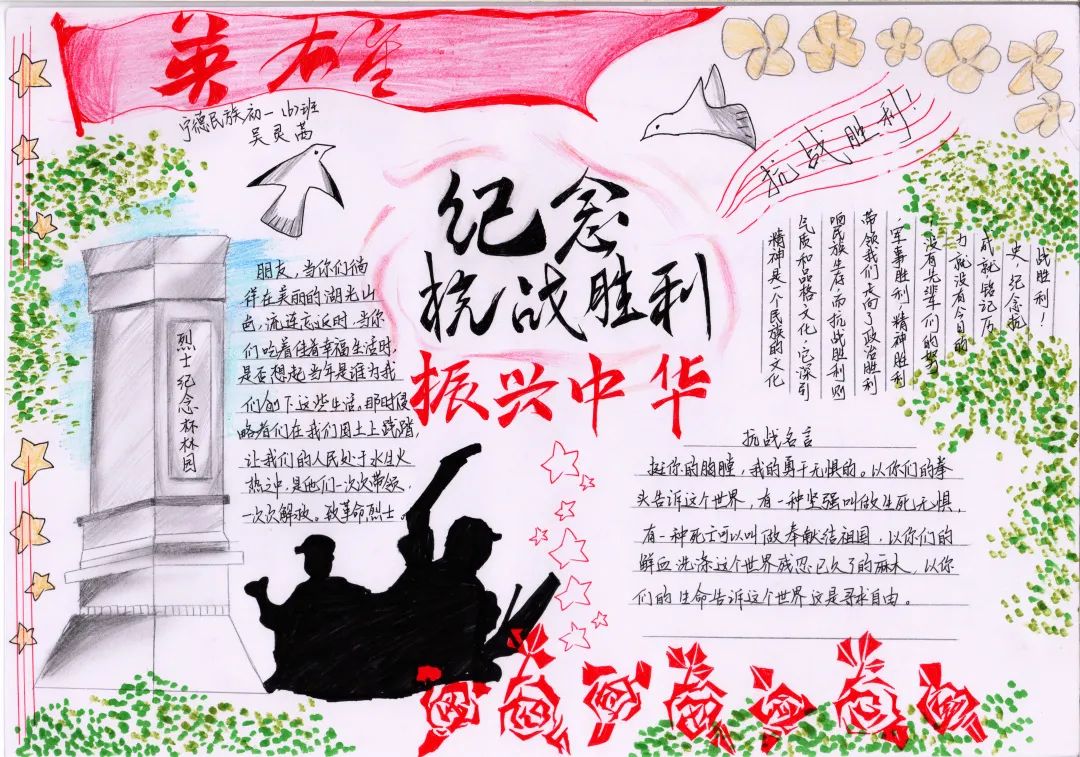 英雄
宁德民族初一(6)班
吴灵茜
纪念
抗战胜利
振兴中华
抗战胜利!
烈士纪念林园
朋友,当你们徜
徉在美丽的湖光山
卤,流连忘返时,当你
们吃着住着幸福生活时,
是否想起当年是谁为我
们创下这些生活。那时侵
略者们在我们国土上践踏,
让我们的人民处于水生火
热之中,是他们一次次带领,
一次次解放。致革命烈士。
精神是一个民族的文化
气质和品格文化,它深引
响民族生存而抗战胜利则
带领我们走向了政治胜利
军事胜利 精神胜利
没有先辈们的努
力就没有今日的
成就铭记历
史 纪念抗
战胜利!
抗战名言
挺你的胸膛,我的勇于无惧的。以你们的拳
头告诉这个世界,有一种坚强叫做生死无惧,
有一种死亡可以叫做奉献给祖国,以你们的
鲜血洗涤这个世界残忍已久了的麻木,以你
们的生命告诉这个世界这是寻求自由。